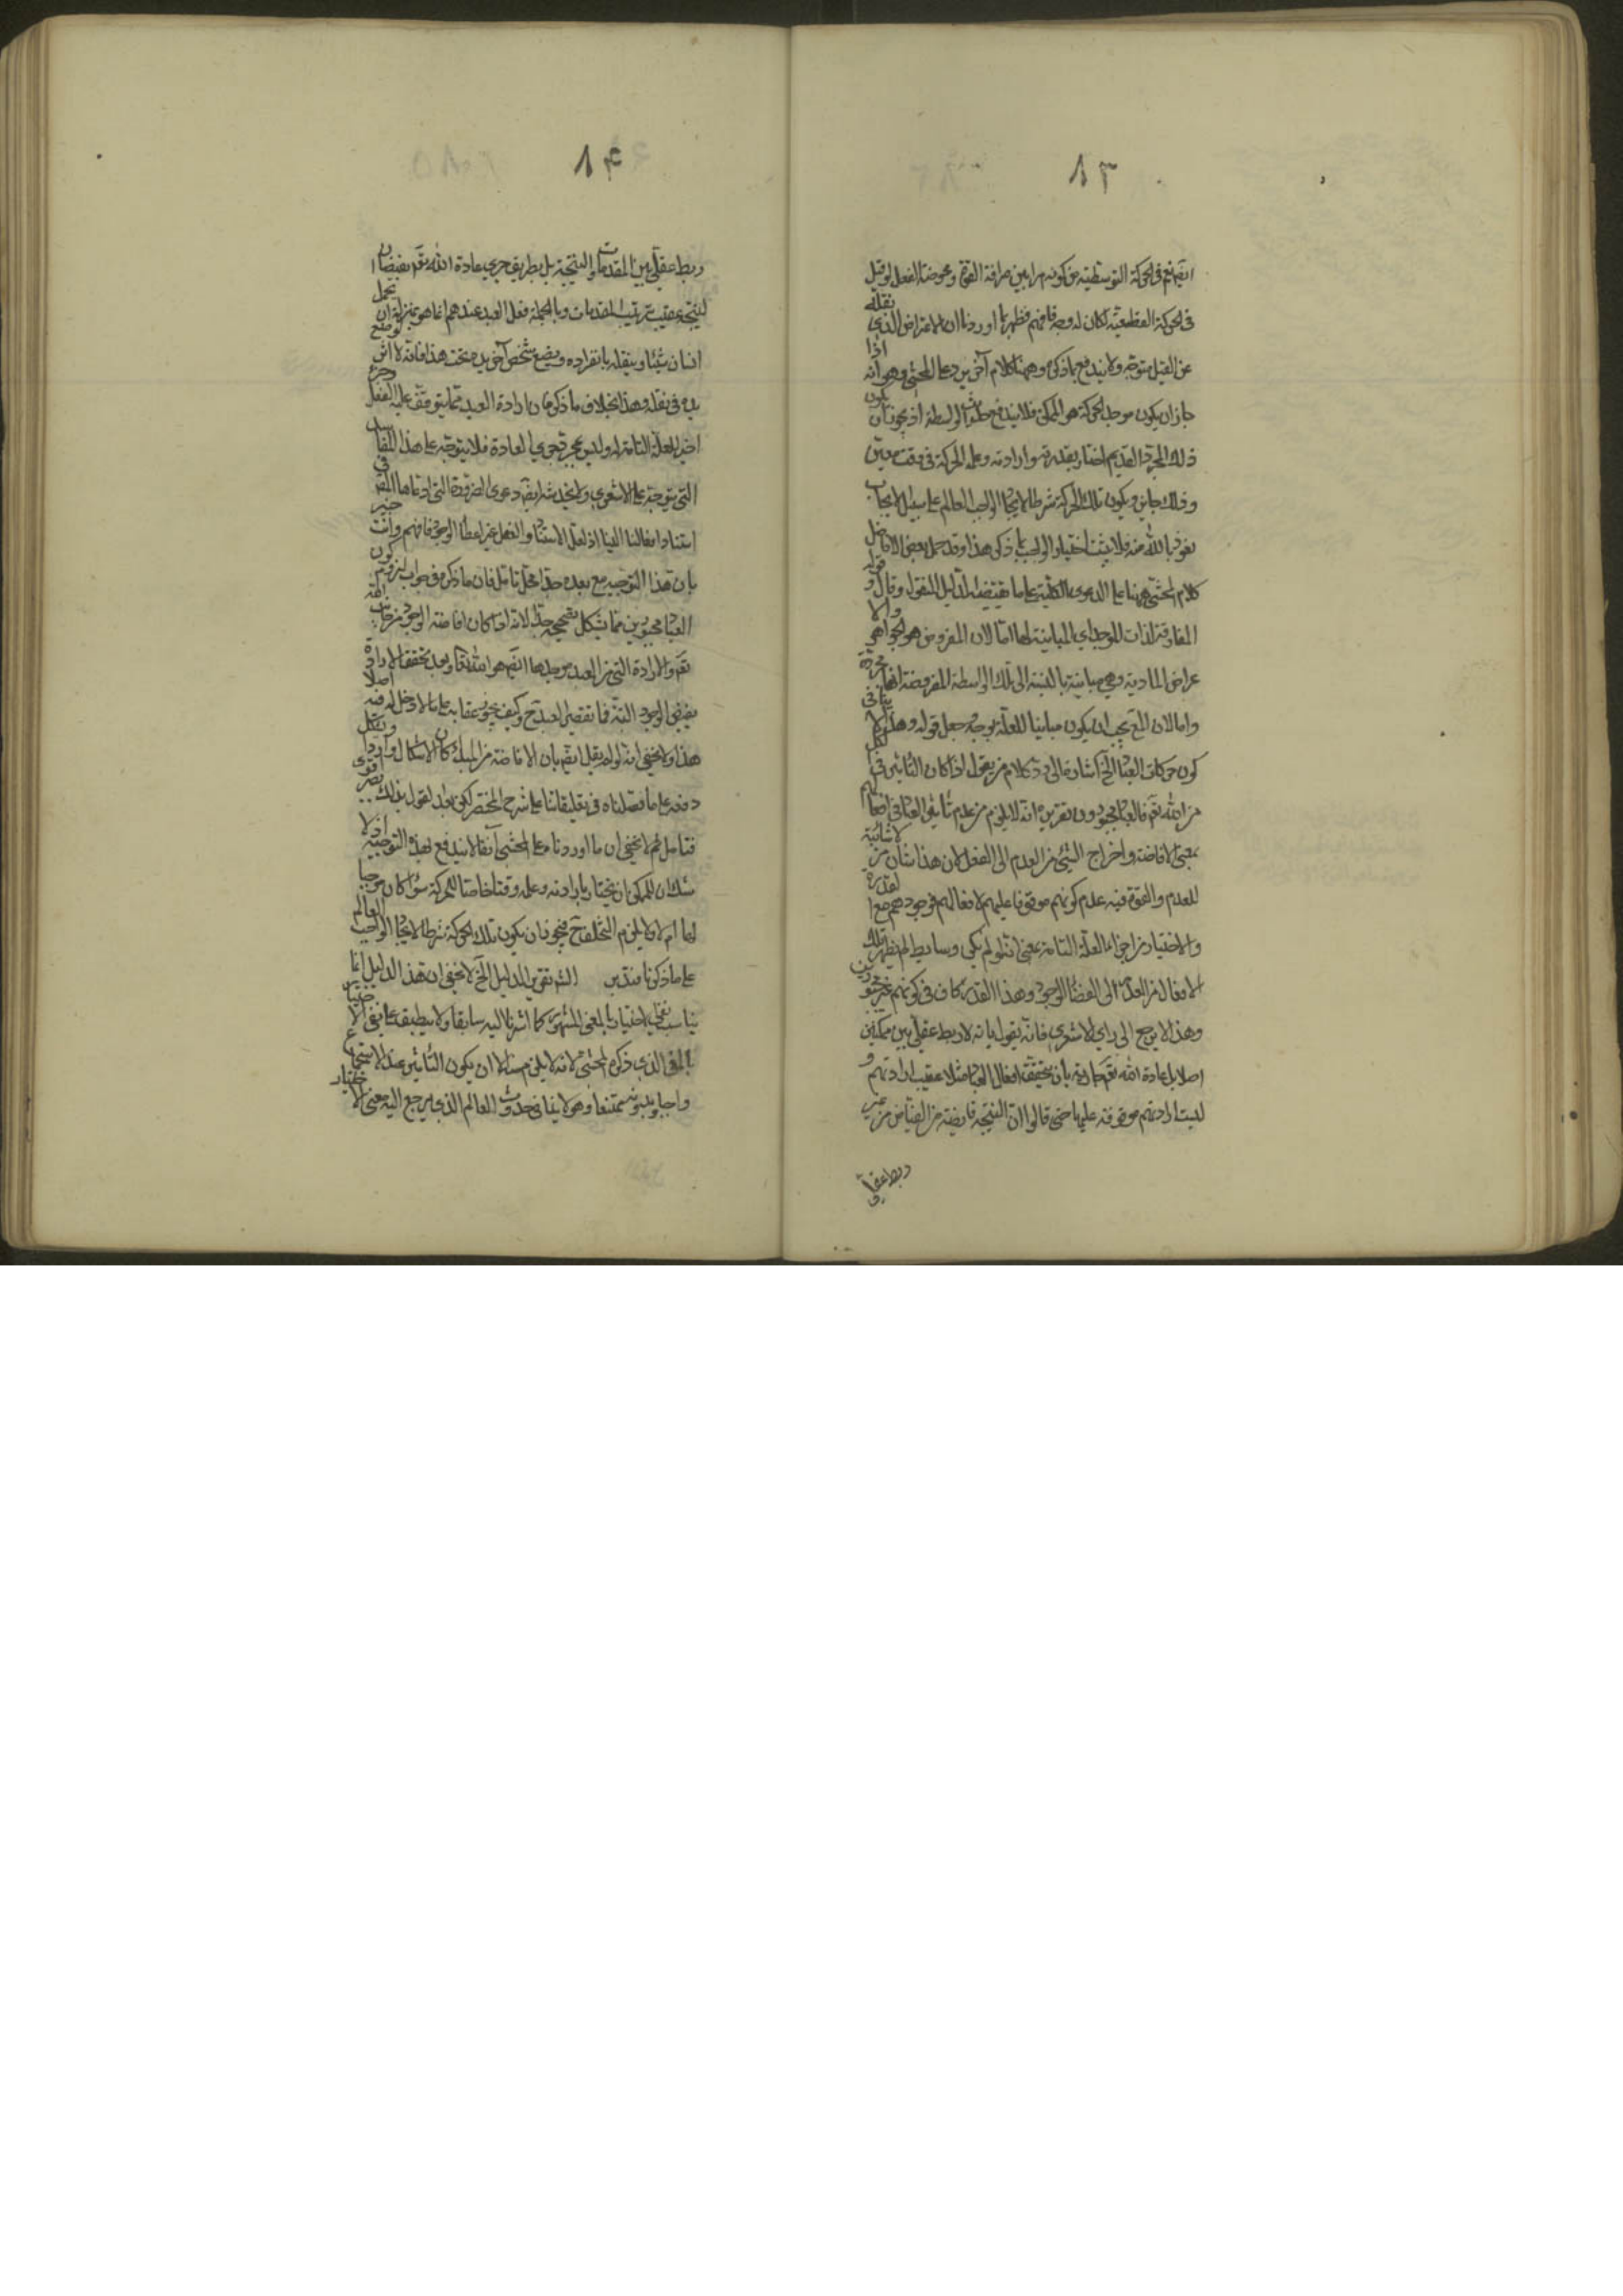 ٨٣
ايضم نع في الحركة التوسطية من كونه مرا بين صرافة القوة ومحوضة الفعل لو قيل
في الحركة القطعية لكان له وجه فافهم فظهر بما اوردنا ان الاعتراض الذي نقله
عن القيل متوجه ولا يندفع بما ذكره وههنا كلام آخر يرد على المحشي وهو انه اذا
جاز ان يكون موجد الحركة هو الممكن فلا يندفع حدوث الواسطة اذ يجوز ان يكون
ذلك المجرد القديم اختار بقدرته وارادته وعلمه الحركة في وقت معين
وذلك جايز ويكون تلك الحركة شرطا لايجاد الواجب العالم على سبيل الايجاب
نعوذ بالله منه فلا يثبت اختيار الواجب بما ذكر هذا وقد حمل بعض الافاضل
كلام المحشي ههنا على الدعوى الكلية على ما يقتضيه الدليل المنقول وقال قوله و
المفارقة لذات الموجد اي المباينة لها امّا لان المفروض هو الجواهر والا
عراض المادية وهي مباينة بالنسبة الى تلك الواسطة المفروضة انها مجردة
واما لان المع يجب ان يكون مباينا للعلة بوجه جعل قوله وهذا لا ينافي
كون حركات العباد الخ اشارة الى رد كلام من يقول اذا كان التأثير في الكل
من الله تعم فالعباد مجبورون تقريره انه لا يلزم من عدم تأثير العباد في افعالهم
بمعنى الافاضة واخراج الشيء من العدم الى الفعل لان هذا شان من لا شائبة
للعدم والقوة فيه عدم كونهم موقوفا عليهم لافعالهم فوجودهم مع القدرة
والاختيار من اجزاء العلة التامة بمعنى انه لو لم يكن وسايط لم يظهر تلك
الافعال من العدم الى الفضاء الوجود وهذا القدر كاف في كونهم غير مجبورين
وهذا لا يرجع الى راي الاشعري فانه يقول بانه لا ربط عقلي بين ممكنين
اصلا بل عادة الله تعم جارية بان يتحقق افعال العباد مثلا عقيب ارادتهم و
ليست ارادتهم موقوفة عليها حتى قالوا ان النتيجة فايضة من الفياض من غير
ربط عقلي
٨٤
ربط عقلي بين المقدمات والنتيجة بل بطريق جري عادة الله تعم بفيضان ا
لنتيجة عقيب ترتيب المقدمات وبالجملة فعل العبد عندهم انما هو بمنزلة ان يحمل
انسان شيئا وينقله بانفراده ويضع شخص آخر يده تحت هذا فانه لا اثر لوضع
يده في نقله وهذا بخلاف ما ذكره فان ارادة العبد مما يتوقف عليه الفعل وجزء
اخير للعلة التامة له وليس بمجرد جري العادة فلا يتوجه على هذا القائل
التي يتوجه على الاشعري ولا يخدشه ايضا دعوى الضرورة التي ادعاها المصـ في
استناد افعالنا الينا اذ لعل الاستناد والفعل غير اعطاء الوجود فافهم وانت خبير
بان هذا التوجيه مع بعده جدا محل تامل فان ما ذكره في جواب لزوم كون
العباد مجبورين مما يشكل تصحيحه جدا لانه اذا كان افاضة الوجود من جانب الله
تعم والارادة التي من العبد موجدها ايضا هو الله تعالى وبعد تحقق الارادة
يفيض الوجود البتة فما تقصير العبد ح وكيف يجوز عقابه على ما لا دخل له فيه اصلا
هذا ولا يخفى انه لو لم يقل ايضم بان الافاضة من المبدء كان الاشكال واردا ويشكل
دفعه على ما فصلناه في تعليقاتنا على شرح المختصر لكن بهذا القول بذلك يصير اقوى
فتامل ثم لا يخفى ان ما اوردنا على المحشي آنفا لا يندفع بهذا التوجيه اذ لا
شك ان للممكن ان يختار بارادته وعلمه وقتا خاصا للحركة سواء كان موجبا
لها ام لا فلا يلزم التخلف ح فيجوز ان يكون تلك الحركة شرطا لايجاد الواجب العالم
على ما ذكرنا فتدبر الشـ تقرير الدليل الخ لا يخفى ان هذا الدليل انما
يناسب نفي الاختيار بالمعنى المشهور كما اشرنا اليه سابقا ولا ينطبق على نفي الاختيار
بالمعنى الذي ذكره المحشي لانه لا يلزم منه الا ان يكون التأثير عند الاستجماع
واجبا وبدونه ممتنعا وهو لا ينافي حدوث العالم الذي يرجع اليه معنى الاختيار